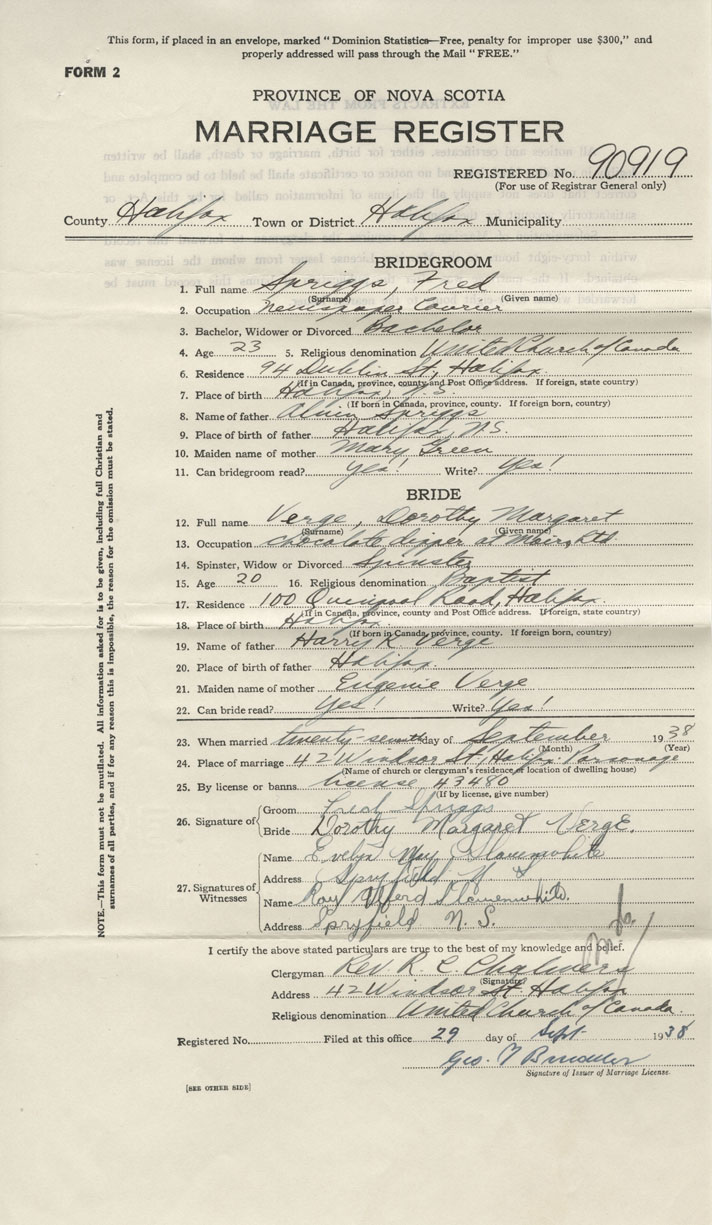 This form, if placed in an envelope, marked "Dominion Statistics—Free, penalty for improper use $300," and
properly addressed will pass through the Mail "FREE."
FORM 2
PROVINCE OF NOVA SCOTIA
MARRIAGE REGISTER
REGISTERED No. 90919
(For use of Registrar General only)
County Halifax Town or District Halifax Municipality
BRIDEGROOM
1. Full name Spriggs, Fred
(Surname) (Given name)
2. Occupation Newspaper Courier
3. Bachelor, Widower or Divorced Bachelor
4. Age 23 5. Religious denomination United Church of Canada
6. Residence 94 Dublin St, Halifax
(If in Canada, province, county and Post Office address. If foreign, state country)
7. Place of birth Halifax, NS
(If born in Canada, province, county. If foreign born, country)
8. Name of father Spriggs
9. Place of father Halifax, N.S.
10. Maiden name of mother Mary Green
11. Can bridegroom read? Yes! Write? Yes!
BRIDE
12. Full name Verge, Dorothy Margaret
(Surname) (Given name)
13. Occupation Chocolate dipper at Moirs, Ltd
14. Spinster, Widow or Divorced Spinster
15. Age 20 16. Religious denomination Baptist
17. Residence 100 Quinpool Road, Halifax.
(If in Canada, province, county and Post Office address. If foreign, state country)
18. Place of birth Halifax
(If born in Canada, province, county. If foreign born, country)
19. Name of father Harry L. Verge
20. Place of birth of father Halifax.
21. Maiden name of mother Eugenie Verge
22. Can bride read? Yes! Write? Yes!
23. When married twenty-seventh day of September 1938
(Month) (Year)
24. Place of marriage 42 Windsor St, Halifax Parsonage
(Name of church or clergyman's residence or location of dwelling house)
25. By license or banns license #3480
(If by license, give number)
26. Signature of Groom Fred Spriggs
Bride Dorothy Margaret Verge.
27. Signatures of Witnesses
Name Evelyn May Slaunwhite
Address Spryfield N. S
Name Ray Slauenwhite.
Address Spryfield N. S.
I certify the above stated particulars are true to the best of my knowledge and belief.
Clergyman Rev. R. E. Chalmers
(Signature)
Address 42 Windsor St Halifax
Religious denomination United Church of Canada.
Registered No. Filed at this office 29 day of Sept. 1938
Geo.
Signature of Issuer of Marriage License.
[SEE OTHER SIDE]
NOTE.—This form must not be mutilated. All information asked for is to be given, including full Christian and
surnames of all parties, and if for any reason this is impossible, the reason for the omission must be stated.